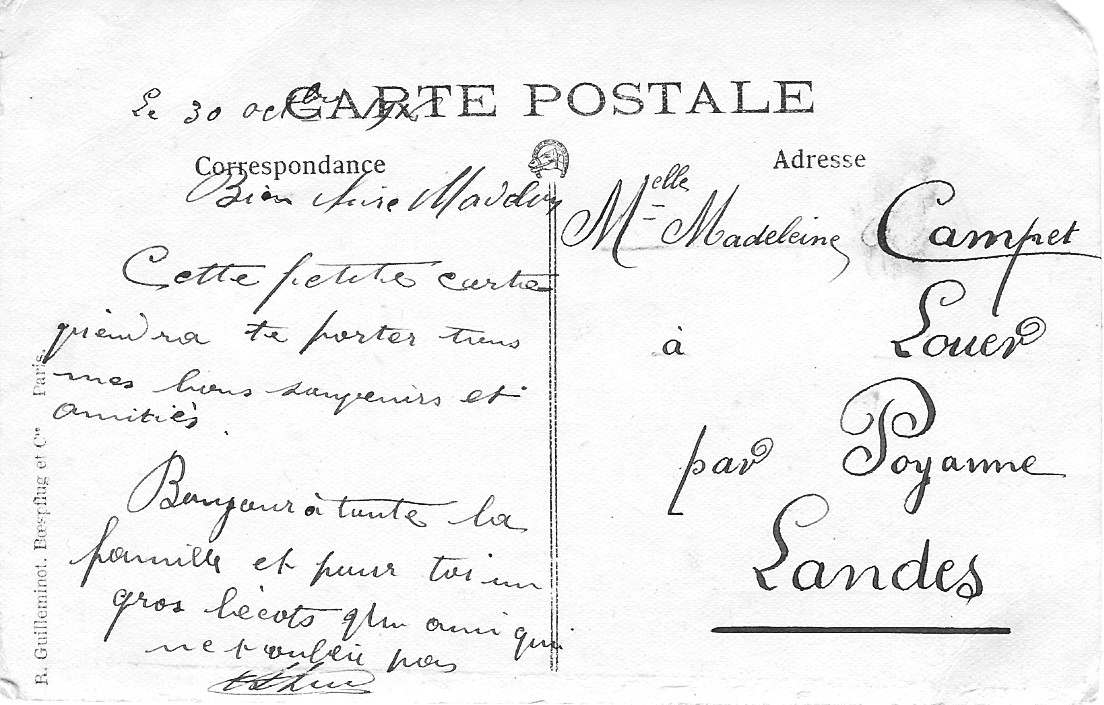 CARTE POSTALE
Le 30 octbre
Correspondance
Adresse
Bien chère
Cette petite carte
viendra te porter tous
mes bons souvenirs et
amitiés.
Bonjour à toute la
famille et pour toi un
gros bécots d'un ami qui
ne t'oublie pas
Melle Madeleine Campet
à Louer
par Poyanne
Landes
R. Guilleminot. Bœspflug et Cie Paris.